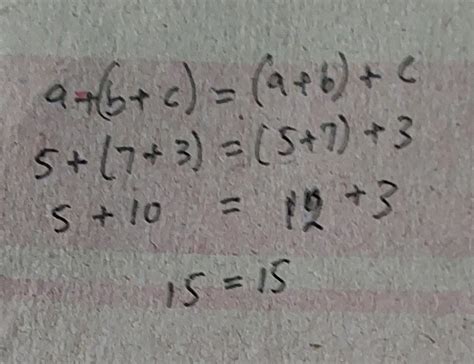 a+(b+c) = (a+b) + c
5 + (7+3) = (5+7) + 3
5 + 10 = 12 + 3
15 = 15